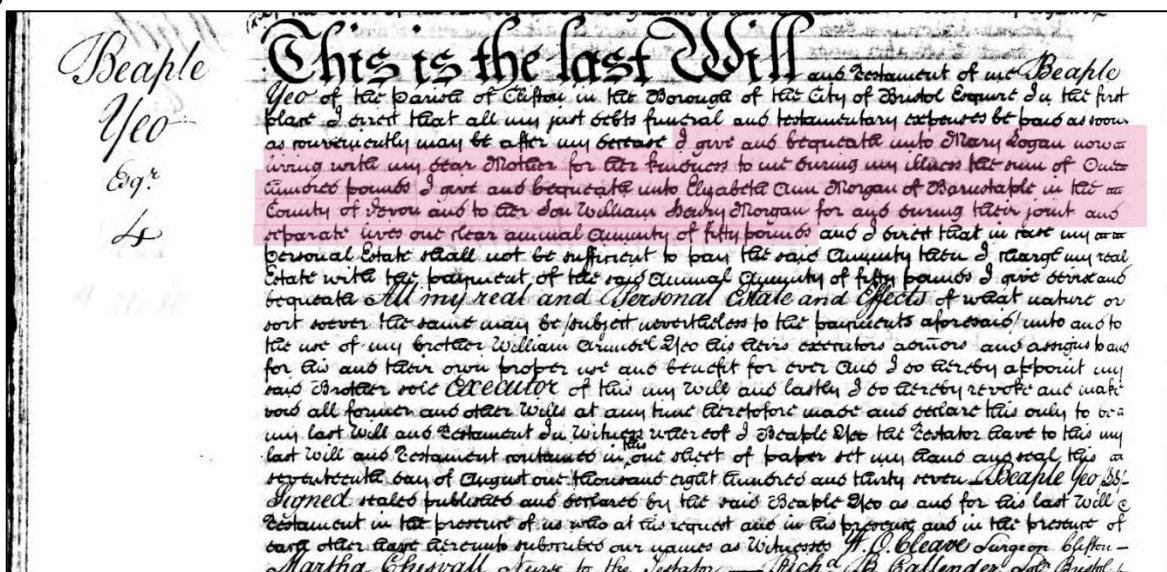 Beaple
Yeo
Esqr
4
This is the last Will and Testament of me Beaple
Yeo of the Parish of Clifton in the Borough of the City of Bristol Esquire In the first
place I direct that all my just debts funeral and testamentary expenses be paid as soon
as conveniently may be after my decease I give and bequeath unto Mary Logan now
living with my dear Mother for her kindness to me during my illness the sum of One
hundred pounds I give and bequeath unto Elizabeth Ann Morgan of Barnstaple in the
County of Devon and to her Son William Henry Morgan for and during their joint and
separate lives one clear annual Annuity of fifty pounds and I direct that in case my
personal Estate shall not be sufficient to pay the said Annuity then I charge my real
Estate with the payment of the said Annual Annuity of fifty pounds I give devise and
bequeath All my real and Personal Estate and Effects of what nature or
sort soever the same may be /subject nevertheless to the payments aforesaid/ unto and to
the use of my brother William Arundel Yeo his heirs executors admors and assigns to and
for his and their own proper use and benefit for ever And I do hereby appoint my
said Brother sole Executor of this my Will and lastly I do hereby revoke and make
void all former and other Wills at any time heretofore made and declare this only to be
my last Will and Testament In Witness whereof I Beaple Yeo the Testator have to this my
last Will and Testament contained in this one sheet of paper set my hand and seal this
seventeenth day of August one thousand eight hundred and thirty seven – Beaple Yeo
Signed sealed published and declared by the said Beaple Yeo as and for his last Will &
Testament in the presence of us who at his request and in his presence and in the presence of
each other have hereunto subscribed our names as Witnesses W. O. Cleave Surgeon Clifton –
Martha Chisvall Nurse to the Testator – Richd B Callender Solr Bristol